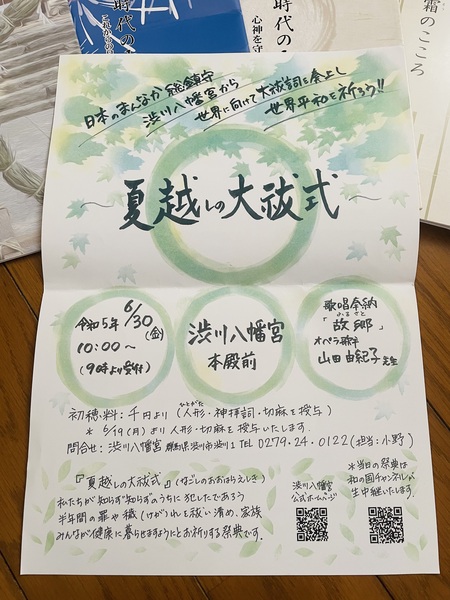 時代の
これからの
時代の
心神を守
霜のこころ
日本のまんなか 総鎮守
渋川八幡宮から
世界に向けて大祓詞を奏上し
世界平和を祈ろう!!
夏越しの大祓式
令和5年 6/30(金)
10:00~
(9時より受付)
渋川八幡宮
本殿前
歌唱奉納
ふるさと
「故郷」
オペラ歌手
山田由紀子先生
ひとがた
初穂料:千円より(人形・神拝詞・切麻を授与)
*6/19(月)より人形・切麻を授与いたします。
問合せ:渋川八幡宮 群馬県渋川市渋川1 TEL 0279-24-0122(担当:小野)
『夏越しの大祓式』(なごしのおおはらえしき)
私たちが知らず知らずのうちに犯したであろう
半年間の罪や穢(けがれ)れを祓い清め、家族
みんなが健康に暮らせますようにとお祈りする祭典です。
渋川八幡宮
公式ホームページ
*当日の祭典は
和の国チャンネルが
生中継いたします。